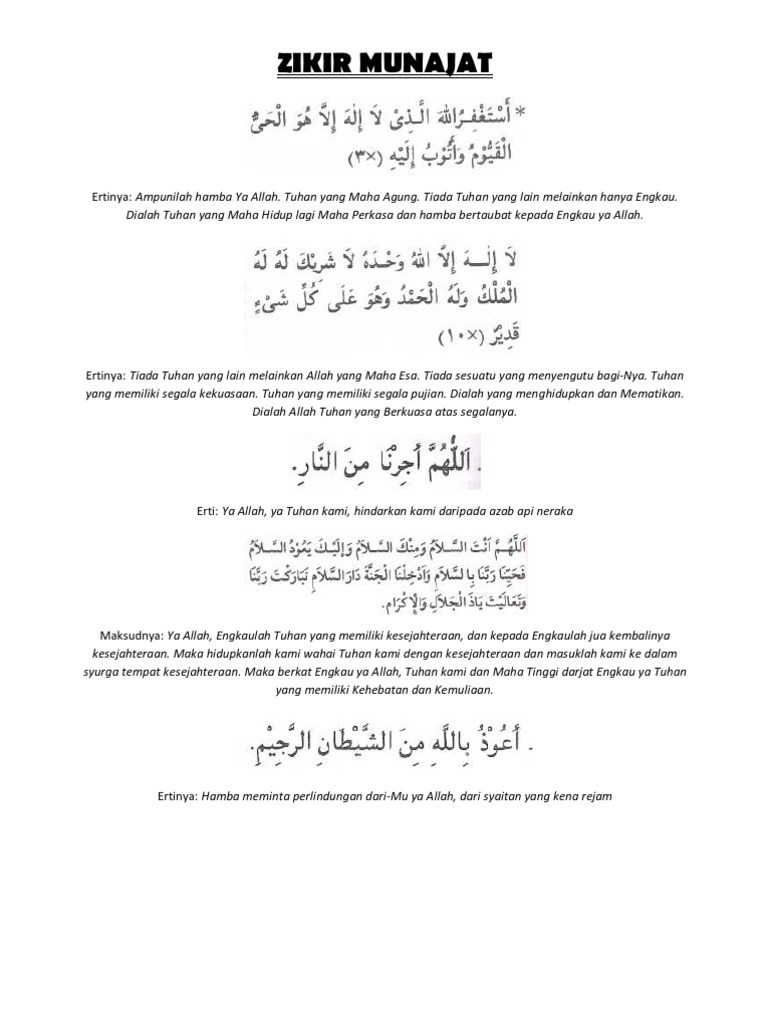 ZIKIR MUNAJAT
* أَسْتَغْفِرُاللهَ الَّذِىْ لَا إِلٰهَ إِلَّا هُوَ الْحَىُّ
الْقَيُّوْمُ وَأَتُوْبُ إِلَيْهِ (×٣)
Ertinya: Ampunilah hamba Ya Allah. Tuhan yang Maha Agung. Tiada Tuhan yang lain melainkan hanya Engkau.
Dialah Tuhan yang Maha Hidup lagi Maha Perkasa dan hamba bertaubat kepada Engkau ya Allah.
لَا إِلٰـهَ إِلَّا اللهُ وَحْدَهُ لَا شَرِيْكَ لَهُ لَهُ
الْمُلْكُ وَلَهُ الْحَمْدُ وَهُوَ عَلَى كُلِّ شَىْءٍ
قَدِيْرٌ (×١٠)
Ertinya: Tiada Tuhan yang lain melainkan Allah yang Maha Esa. Tiada sesuatu yang menyengutu bagi-Nya. Tuhan
yang memiliki segala kekuasaan. Tuhan yang memiliki segala pujian. Dialah yang menghidupkan dan Mematikan.
Dialah Allah Tuhan yang Berkuasa atas segalanya.
. اَللّٰهُمَّ أَجِرْنَا مِنَ النَّارِ.
Erti: Ya Allah, ya Tuhan kami, hindarkan kami daripada azab api neraka
اَللّٰهُمَّ أَنْتَ السَّلَامُ وَمِنْكَ السَّلَامُ وَإِلَيْكَ يَعُوْدُ السَّلَامُ
فَحَيِّنَا رَبَّنَا بِالسَّلَامِ وَأَدْخِلْنَا الْجَنَّةَ دَارَالسَّلَامِ تَبَارَكْتَ رَبَّنَا
وَتَعَالَيْتَ يَاذَ الْجَلَالِ وَالْإِكْرَامِ.
Maksudnya: Ya Allah, Engkaulah Tuhan yang memiliki kesejahteraan, dan kepada Engkaulah jua kembalinya
kesejahteraan. Maka hidupkanlah kami wahai Tuhan kami dengan kesejahteraan dan masuklah kami ke dalam
syurga tempat kesejahteraan. Maka berkat Engkau ya Allah, Tuhan kami dan Maha Tinggi darjat Engkau ya Tuhan
yang memiliki Kehebatan dan Kemuliaan.
. أَعُوْذُ بِاللَّهِ مِنَ الشَّيْطَانِ الرَّجِيْمِ.
Ertinya: Hamba meminta perlindungan dari-Mu ya Allah, dari syaitan yang kena rejam